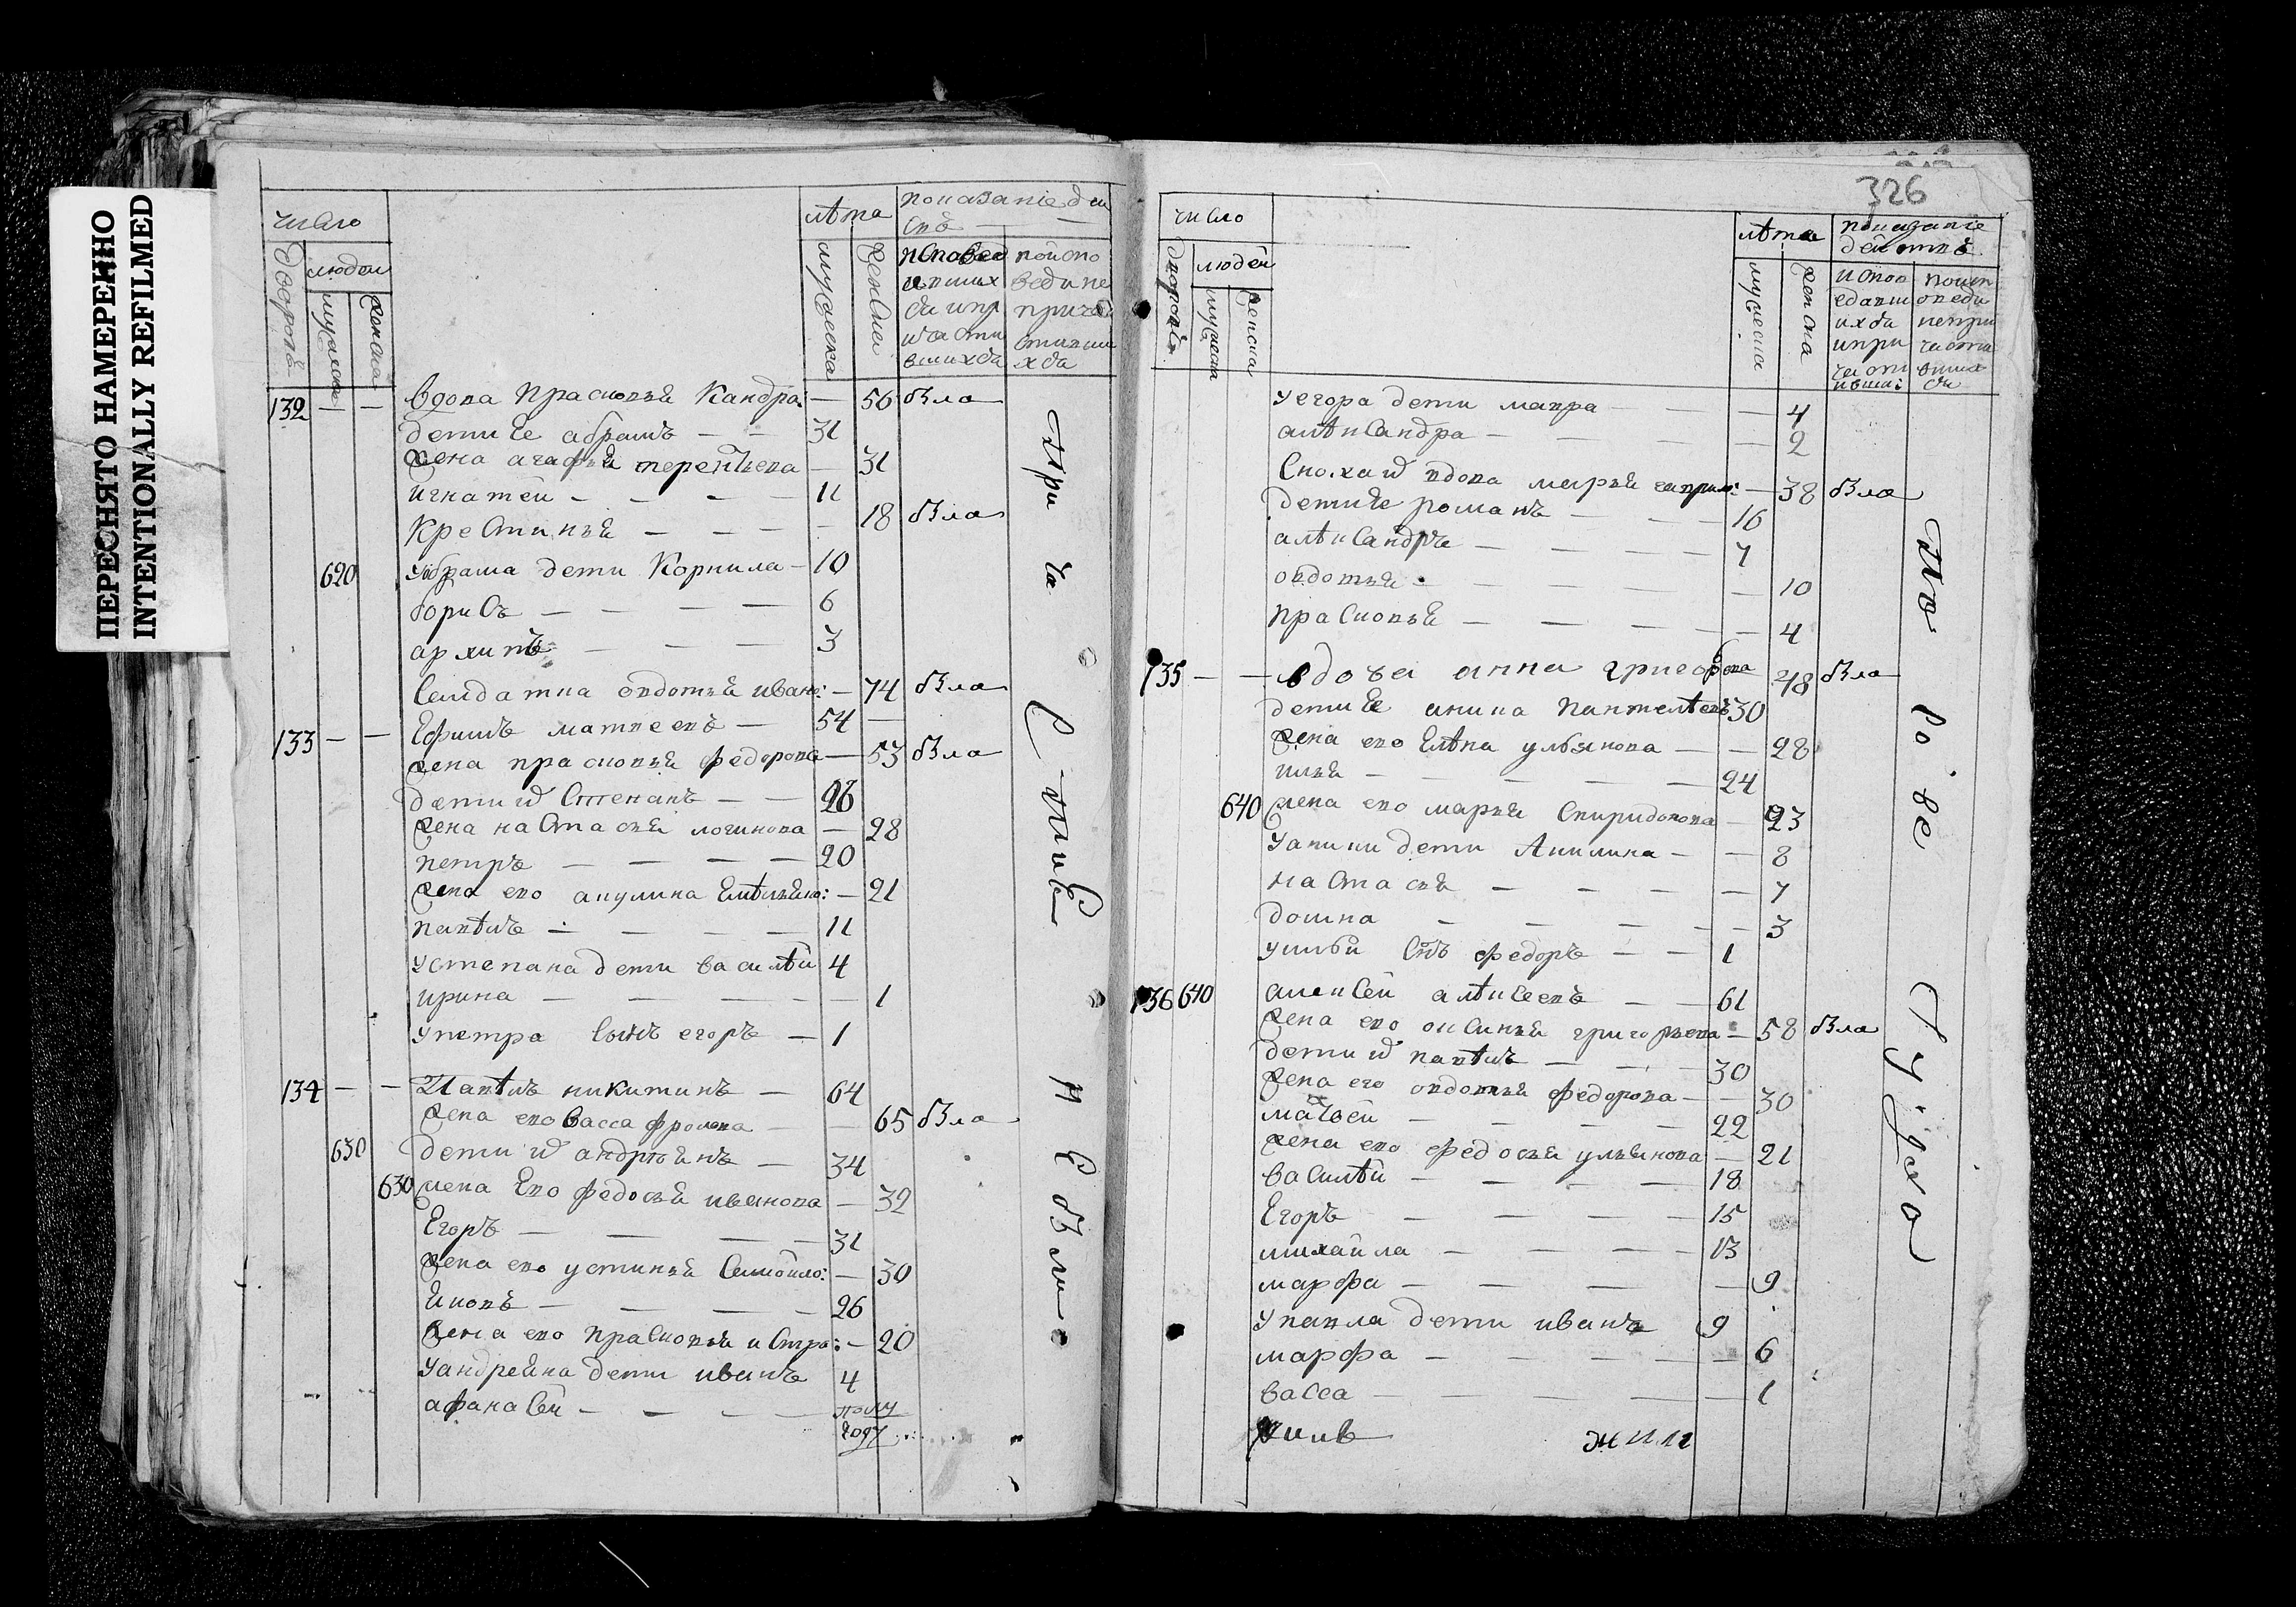 ПЕРЕСНЯТО НАМЕРЕННО
INTENTIONALLY REFILMED
число
лѣта
показание дей
ствъ
дворовъ
людей
мужеска
женска
мужеска
женска
132 — — вдова прасковья Кандра: — 56 была
дети ее абрамъ — — 31
жена агафья терентьева — 31
игнатей — — — — 11
крестинья — — — — 18 была
620 у абрама дети Корнила — 10
борисъ — — — — 6
архипъ — — — 3
салдатка овдотья ивано: — 74 была
133 — — Ефимъ матвеевъ — 54 —
жена прасковья федорова — 53 была
дети их степанъ — — 26
жена настасья логинова — 28
петръ — — — — 20
жена ево акулина Емѣльяно: — 21
павѣлъ — — — — 11
у степана дети василѣй 4
ирина — — — — 1
у петра сынъ егоръ — 1
134 — — Павѣлъ никитинъ — 64
жена ево васса фролова — — 65 была
630 дети их андрѣянъ — 34
630 жена Ево федосья иванова — 32
Егоръ — — — — 31
жена ево устинья Самойло: — 30
Яковъ — — — — 26
жена ево прасковья истра: — 20
у андреяна дети иванъ 4
афанасей — — — — полу
году
При ча
С тив
ш
Н е бы ли
326
число
лѣта
показание
действъ
дворовъ
людей
мужеска
женска
мужеска
женска
у егора дети мавра — — — 4
алѣксандра — — — — 2
сноха их вдова марья гаврило: — 38 была
дети ее романъ — — — 16
алѣксандръ — — — — 7
овдотья — — — — 10
прасковья — — — — — 4
135 — — вдова анна григорьева 48 была
дети ее аника пантелѣевъ 30
жена ево Елѣна ульянова — — 28
илья — — — — 24
640 жена ево марья Спиридонова — 23
у аники дети Акилина — — 8
настасья — — — — — 7
домна — — — — — 3
у ильи сынъ федоръ — — 1
136 640 алексей алѣксеевъ — — 61
жена ево оксинья григорьева — 58 была
дети их павѣлъ — — — 30
жена его овдотья федорова — — 30
матвей — — — — 22
жена ево федосья ульянова — 21
василѣй — — — — 18
Егоръ — — — — 15
михайла — — — — 13
марфа — — — — 9
у павла дети иванъ 9
марфа — — — — — 6
васса — — — — — 1